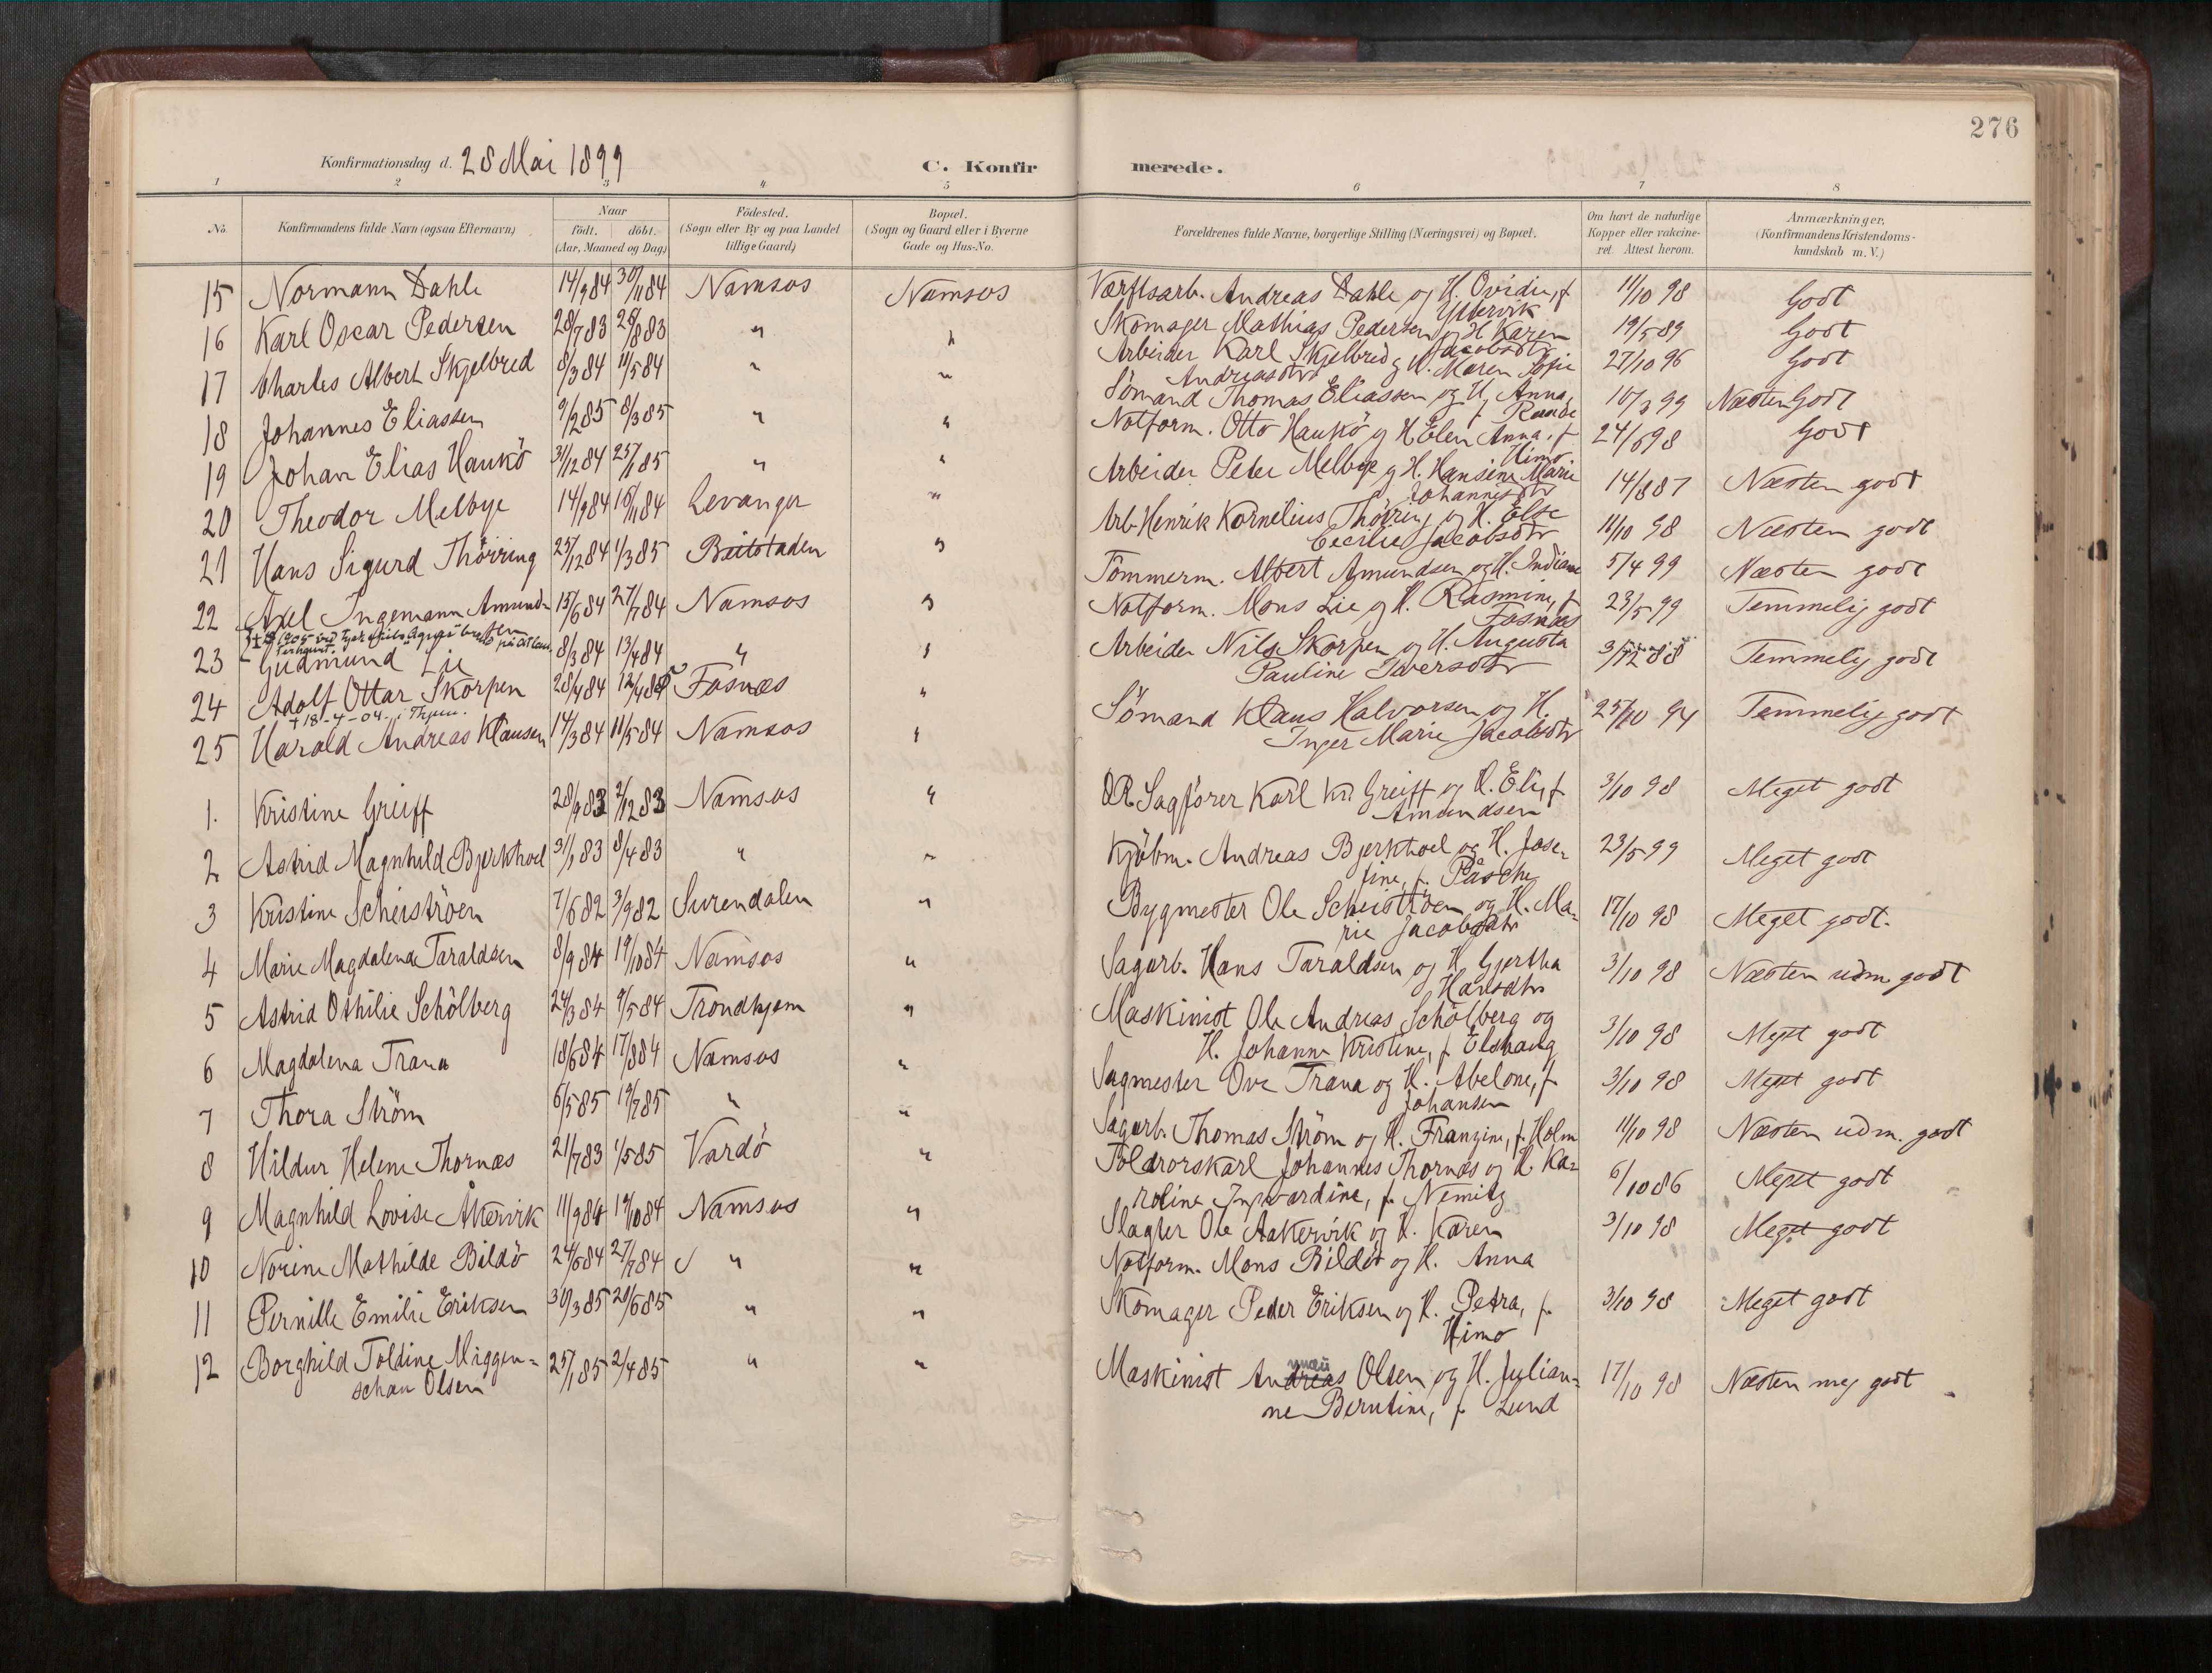 276
Konfirmationsdag d. 28 Mai 1899 C. Konfirmerede.
1 2 3 4 5 6 7 8
No Konfirmandens fulde Navn (ogsaa Efternavn) Naar födt. döbt. (Aar, Maaned og Dag) Födested. (Sogn eller By og paa Landet tillige Gaard) Bopæl. (Sogn og Gaard eller i Byerne Gade og Hus-No. Forældrenes fulde Navne, borgerlige Stilling (Næringsvei) og Bopæl. Om havt de naturlige Kopper eller vakcineret. Attest herom. Anmærkninger, (Konfirmandens Kristendomskundskab m. V.)
15 Normann Dahle 14/9 84 30/11 84 Namsos Namsos Værftsarb. Andreas Dahle og H. Ovidie, f. Yttervik 11/10 98 Godt
16 Karl Oscar Pedersen 28/7 83 28/8 83 " " Skomager Mathias Pedersen og H. Karen Jacobsdtr 19/5 89 Godt
17 Charles Albert Skjelbred 8/3 84 11/5 84 " " Arbeider Karl Skjelbred og H. Maren Sofie Andreasdtr 27/10 96 Godt
18 Johannes Eliassen 9/2 85 8/3 85 " " Sömand Thomas Eliassen og H. Anna, f. Raade 10/3 99 Næsten Godt
19 Johan Elias Haukö 31/12 84 25/1 85 " " Notform. Otto Haukö og H. Elen Anna, f. Himo 24/6 98 Godt
20 Theodor Melbye 14/9 84 16/11 84 Levanger " Arbeider Peter Melbye og H. Hansine Marie Johannesdtr 14/8 87 Næsten godt
21 Hans Sigurd Thörring 25/12 84 1/3 85 Beitstaden " Arb. Henrik Kornelius Thörring og H. Else Cecilie Jacobsdtr 11/10 98 Næsten godt
22 Axel Ingemann Amundsen 15/6 84 27/7 84 Namsos " Tömmerm. Albert Amundsen og H. Indiane 5/4 99 Næsten godt
23 Gudmund Lie 8/3 84 13/4 84 " " Notform. Mons Lie og H. Rasmine, f. Fosnæs 23/5 99 Temmelig godt
24 Adolf Ottar Skorpen 28/4 84 Fosnæs " Arbeider Nils Skorpen og H. Augusta Pauline Iversdtr 3/12 88 Temmelig godt
† 18-4-04. i Thjem.
25 Harald Andreas Klausen 14/3 84 11/5 84 Namsos " Sömand Klaus Halvorsen og H. Inger Marie Jacobsdtr 25/10 94 Temmelig godt
1. Kristine Greiff 28/9 83 2/12 83 Namsos " O.R. Sagförer Karl Kr. Greiff og H. Eli, f. Amundsen 3/10 98 Meget godt
2 Astrid Magnhild Bjerkhoel 31/1 83 8/4 83 " " Kjöbm. Andreas Bjerkhoel og H. Josefine, f. Påsche 23/5 99 Meget godt
3 Kristine Scheiströen 7/6 82 3/9 82 Surendalen " Bygmester Ole Scheiströen og H. Marie Jacobsdtr 17/10 98 Meget godt.
4 Marie Magdalena Taraldsen 8/9 84 19/10 84 Namsos " Sagarb. Hans Taraldsen og H. Gjertha Hansdtr 3/10 98 Næsten udm. godt
5 Astrid Othilie Schölberg 24/3 84 4/5 84 Trondhjem " Maskinist Ole Andreas Schölberg og H. Johanne Kristine, f. Elshaug 3/10 98 Meget godt
6 Magdalena Trana 18/6 84 17/8 84 Namsos " Sagmester Ove Trana og H. Abelone, f. Johansen 3/10 98 Meget godt
7 Thora Ström 6/5 85 19/7 85 " " Sagarb. Thomas Ström og H. Franzine, f. Holm 11/10 98 Næsten udm. godt
8 Hildur Helene Thornæs 21/7 83 1/5 85 Vardö " Toldrorskarl Johannes Thornæs og H. Karoline Ingvardine, f. Nemitz 6/10 86 Meget godt
9 Magnhild Lovise Åkervik 11/9 84 19/10 84 Namsos " Slagter Ole Aakervik og H. Karen 3/10 98 Meget godt
10 Norine Mathilde Bildö 24/6 84 27/7 84 " " Notform. Mons Bildö og H. Anna
11 Pernille Emilie Eriksen 30/3 85 20/6 85 " " Skomager Peder Eriksen og H. Petra, f. Himo 3/10 98 Meget godt
12 Borghild Toldine Miggenschau Olsen 25/1 85 2/4 85 " " Maskinist Andreas Olsen og H. Julianne Berntine, f. Lund 17/10 98 Næsten meg godt